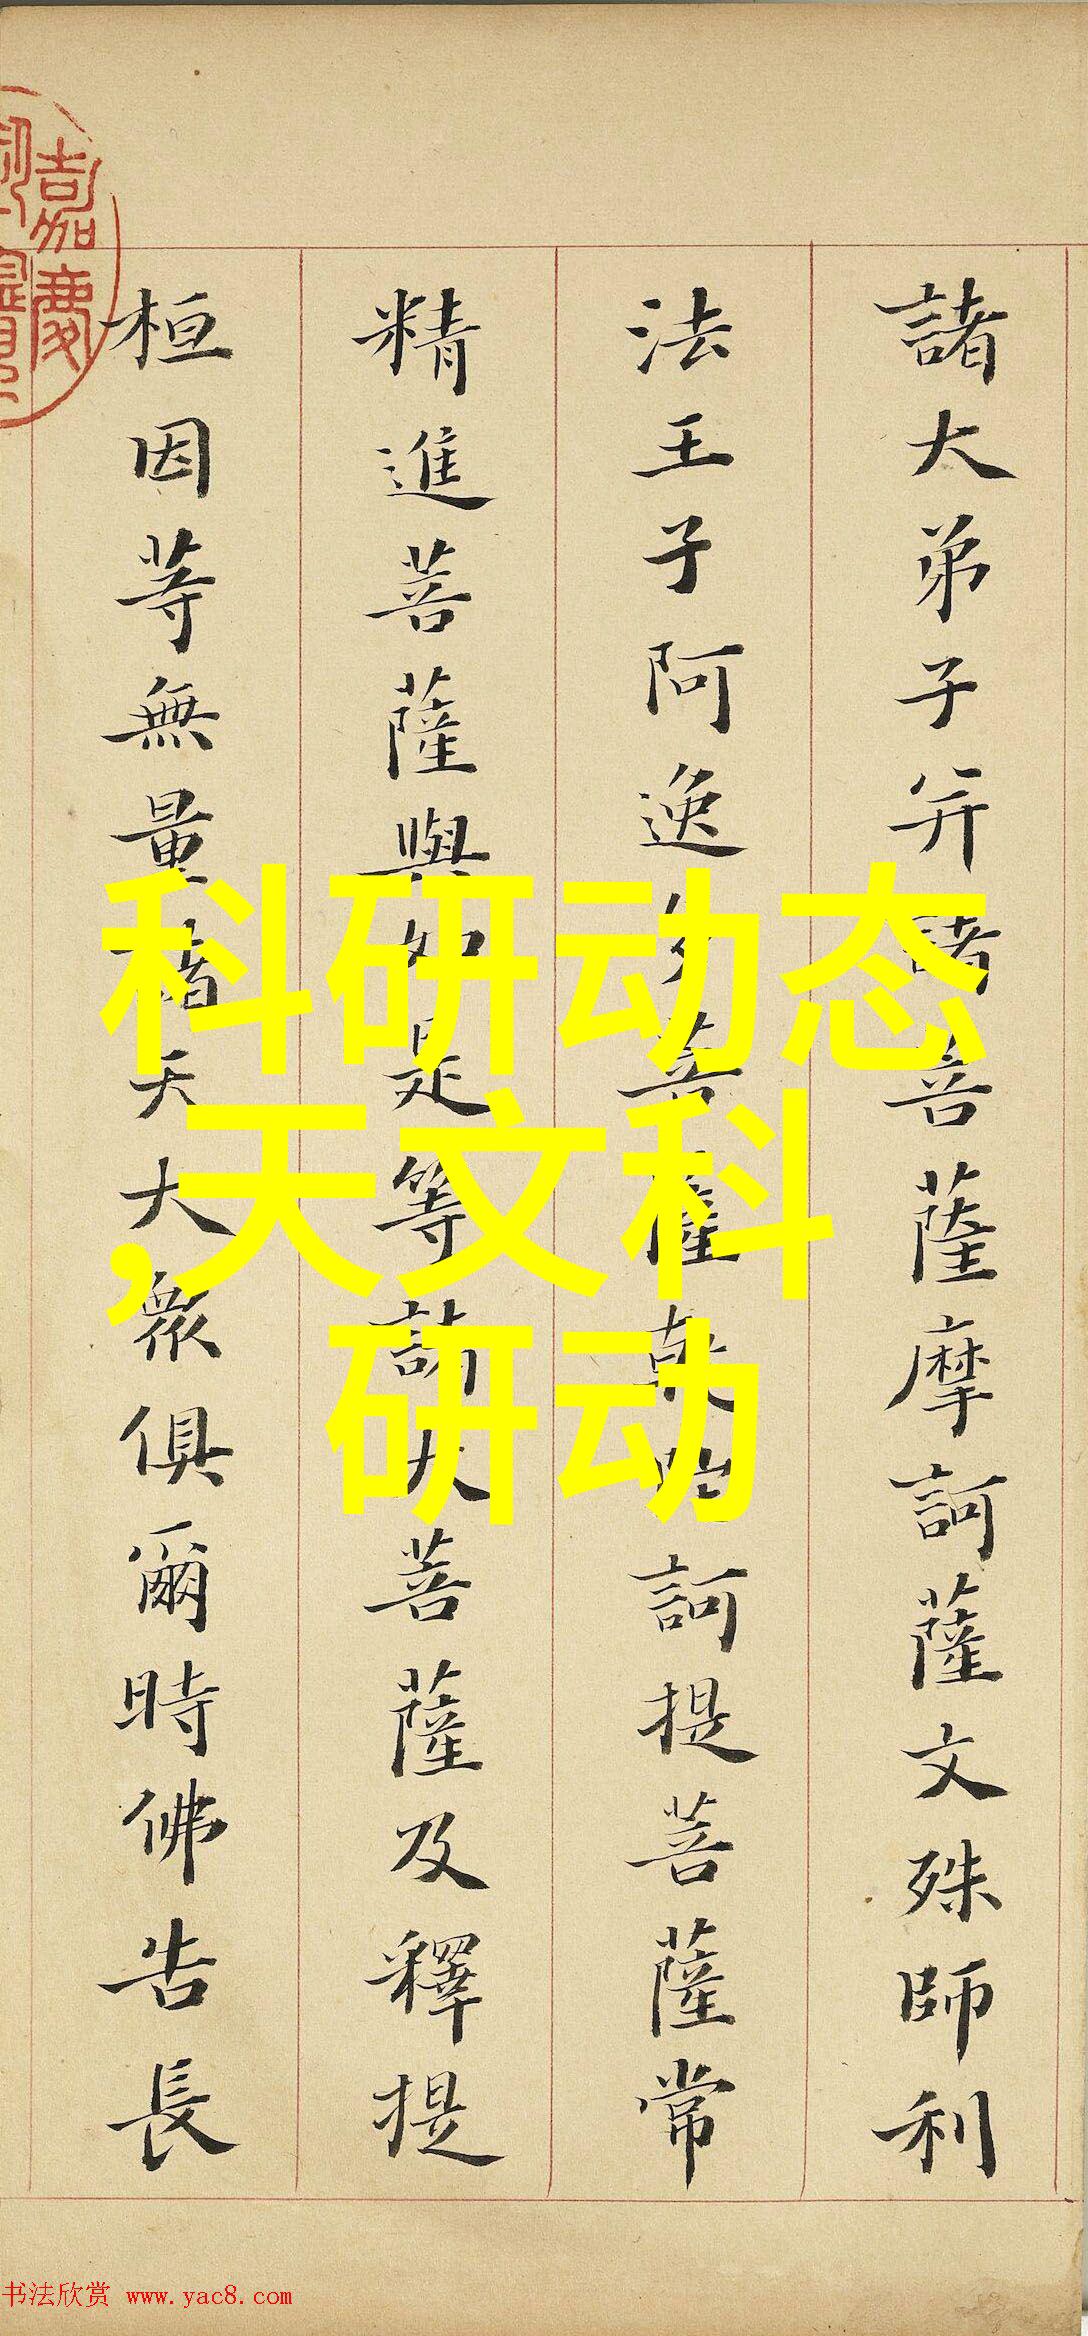 諸大弟子并諸菩薩摩訶薩文殊師利
法王子阿逸多菩薩乾陀訶提菩薩常
精進菩薩與如是等諸大菩薩及釋提
桓因等無量諸天大眾俱爾時佛告長
嘉慶
科研动态
,天文科
研动
书法欣赏 www.yac8.com